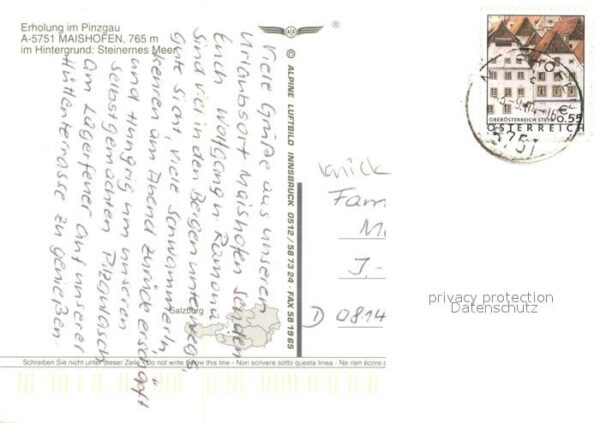 Erholung im Pinzgau
A-5751 MAISHOFEN, 765 m
im Hintergrund: Steinernes Meer
®
© ALPINE LUFTBILD INNSBRUCK 0512 / 58 73 24 · FAX 58 19 65
Viele Grüße aus unserem
Urlaubsort Maishofen senden
Euch Wolfgang u. Ramona
Sind viel in den Bergen unterwegs,
Gute Sicht, viele Schwammerln,
kehren am Abend zurück erschöpft
und hungrig um unseren
selbstgemachten Pilzgulasch
am Lagerfeuer auf unserer
Hüttenterrasse zu genießen.
Salzburg
OBERÖSTERREICH STEYR
€0.55
ÖSTERREICH
5751
Knick
Fam
J.-
D 0814
privacy protection
Datenschutz
Schreiben Sie nicht unter dieser Zeile · Do not write below this line - Non scrivere sotto questa linea - Ne rien écrire a